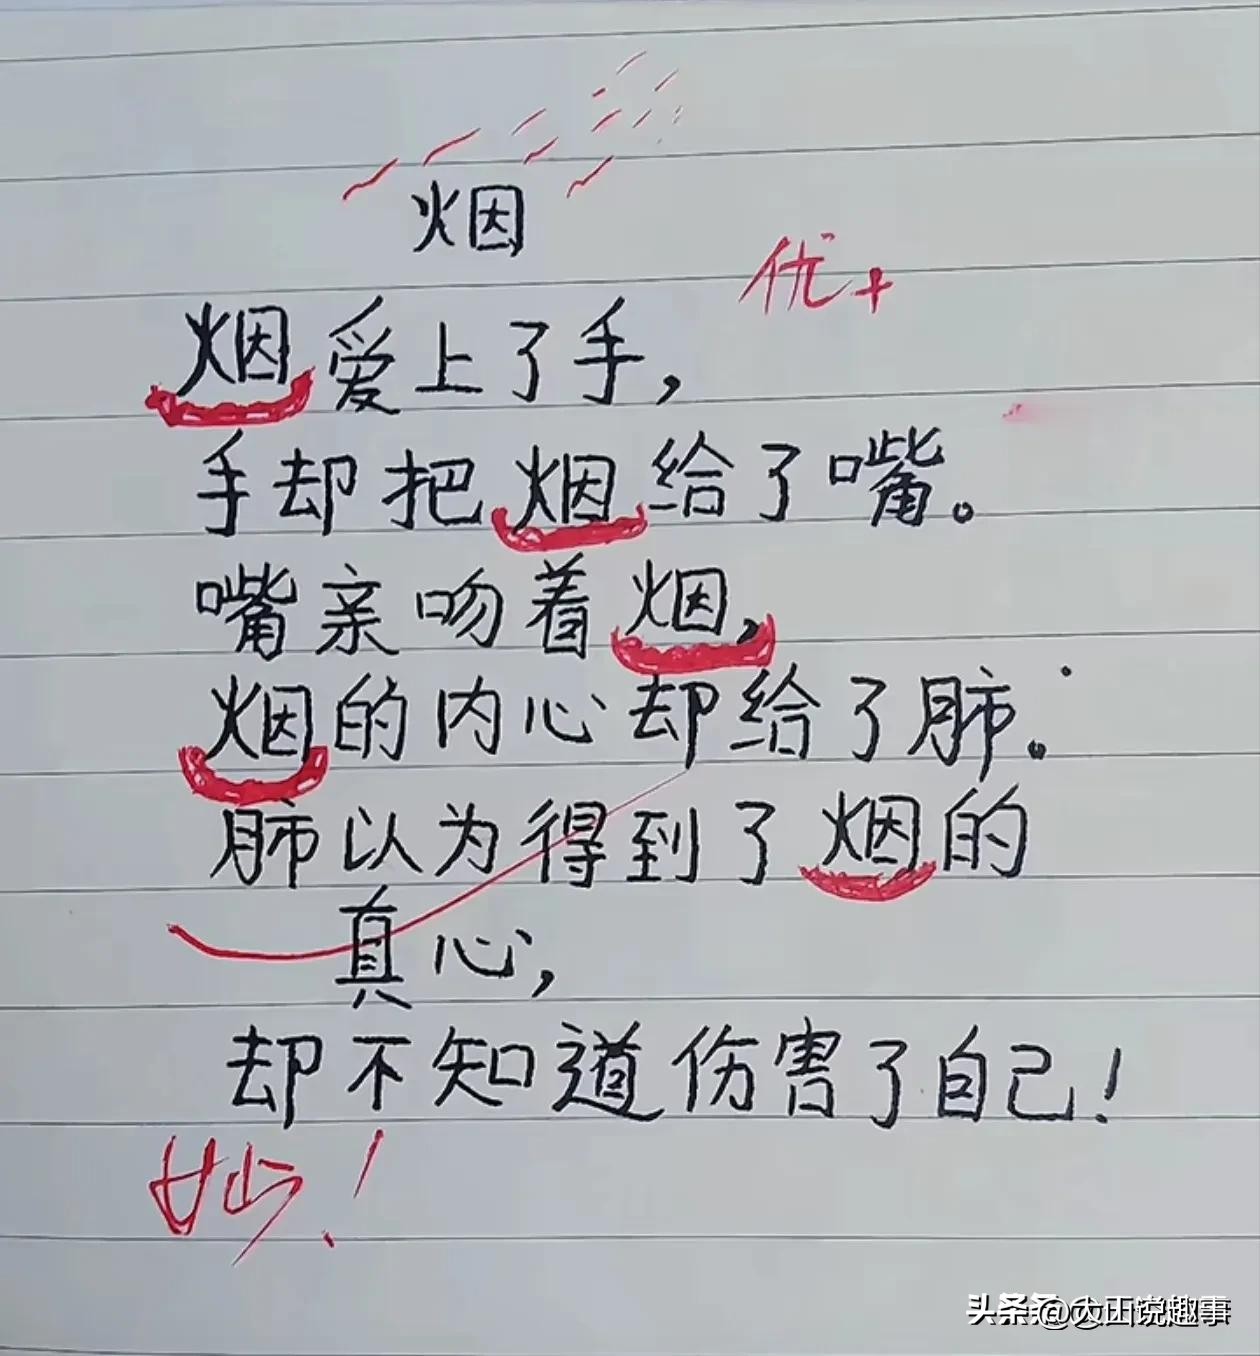 烟
优+
烟爱上了手,
手却把烟给了嘴。
嘴亲吻着烟,
烟的内心却给了肺。
肺以为得到了烟的
真心,
却不知道伤害了自己!
妙!
头条 @大山说趣事